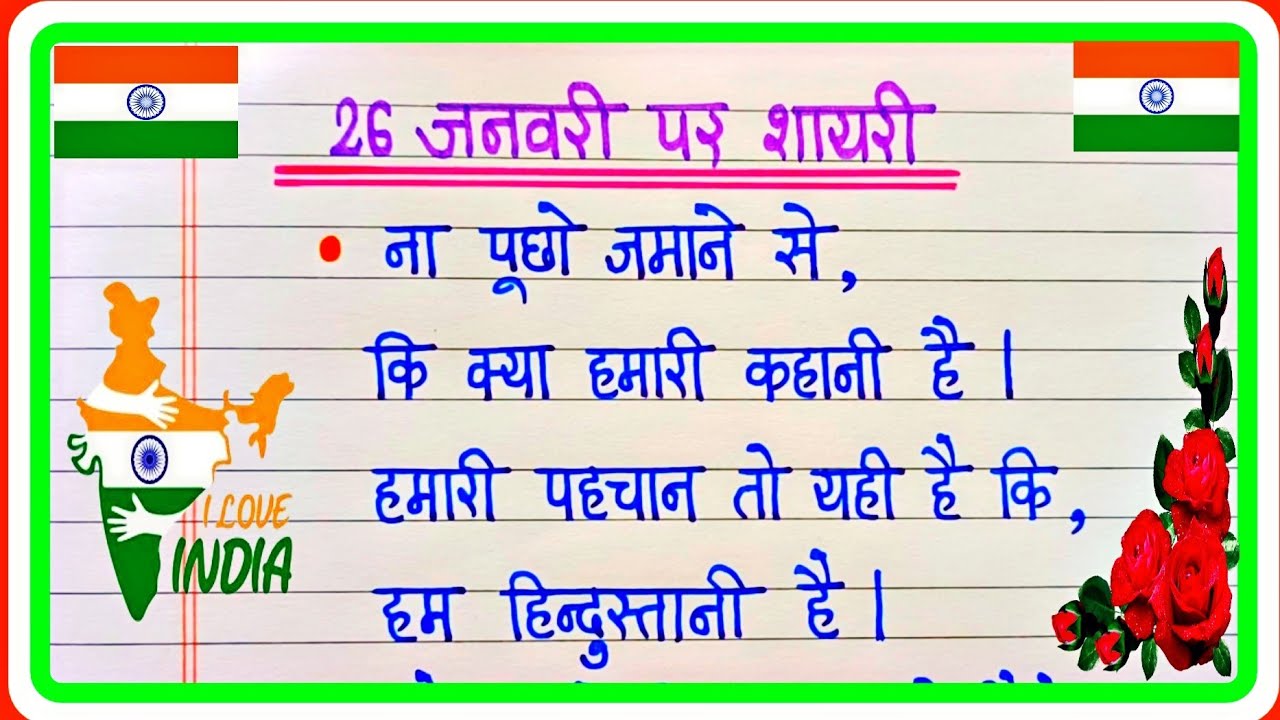 26 जनवरी पर शायरी
• ना पूछो जमाने से,
कि क्या हमारी कहानी है।
हमारी पहचान तो यही है कि,
हम हिन्दुस्तानी है।
I LOVE
INDIA